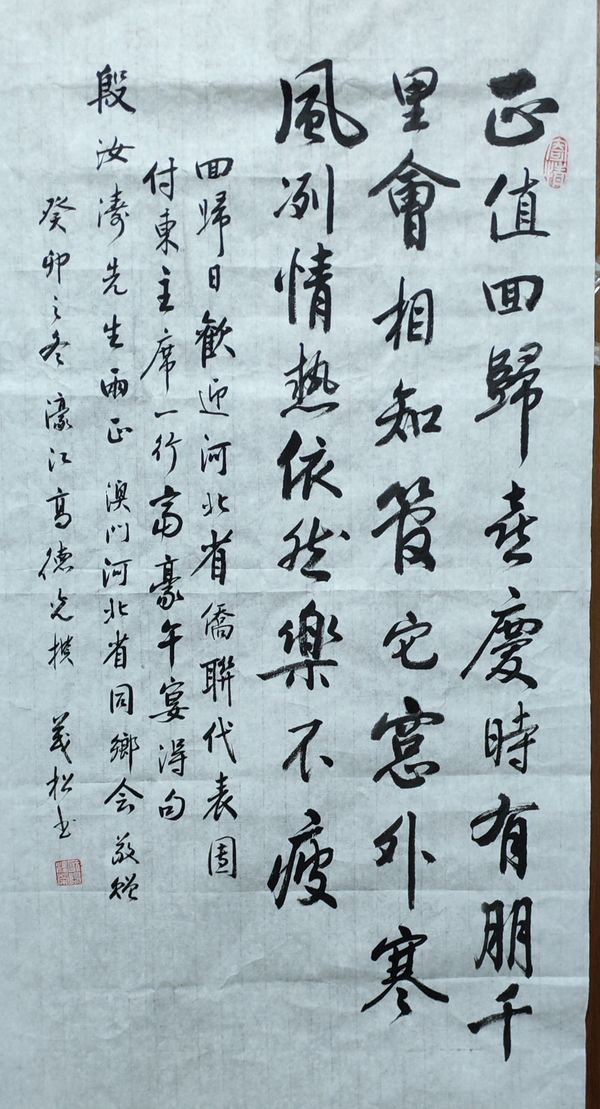 正值回歸喜慶時有朋千
里會相知管它窓外寒
風冽情熱依然樂不疲
回歸日歡迎河北省僑聯代表團
付東主席一行富豪午宴得句
殷汝濤先生兩正 澳门河北省同鄉会敬贈
癸卯之冬濠江高德光撰 義松书